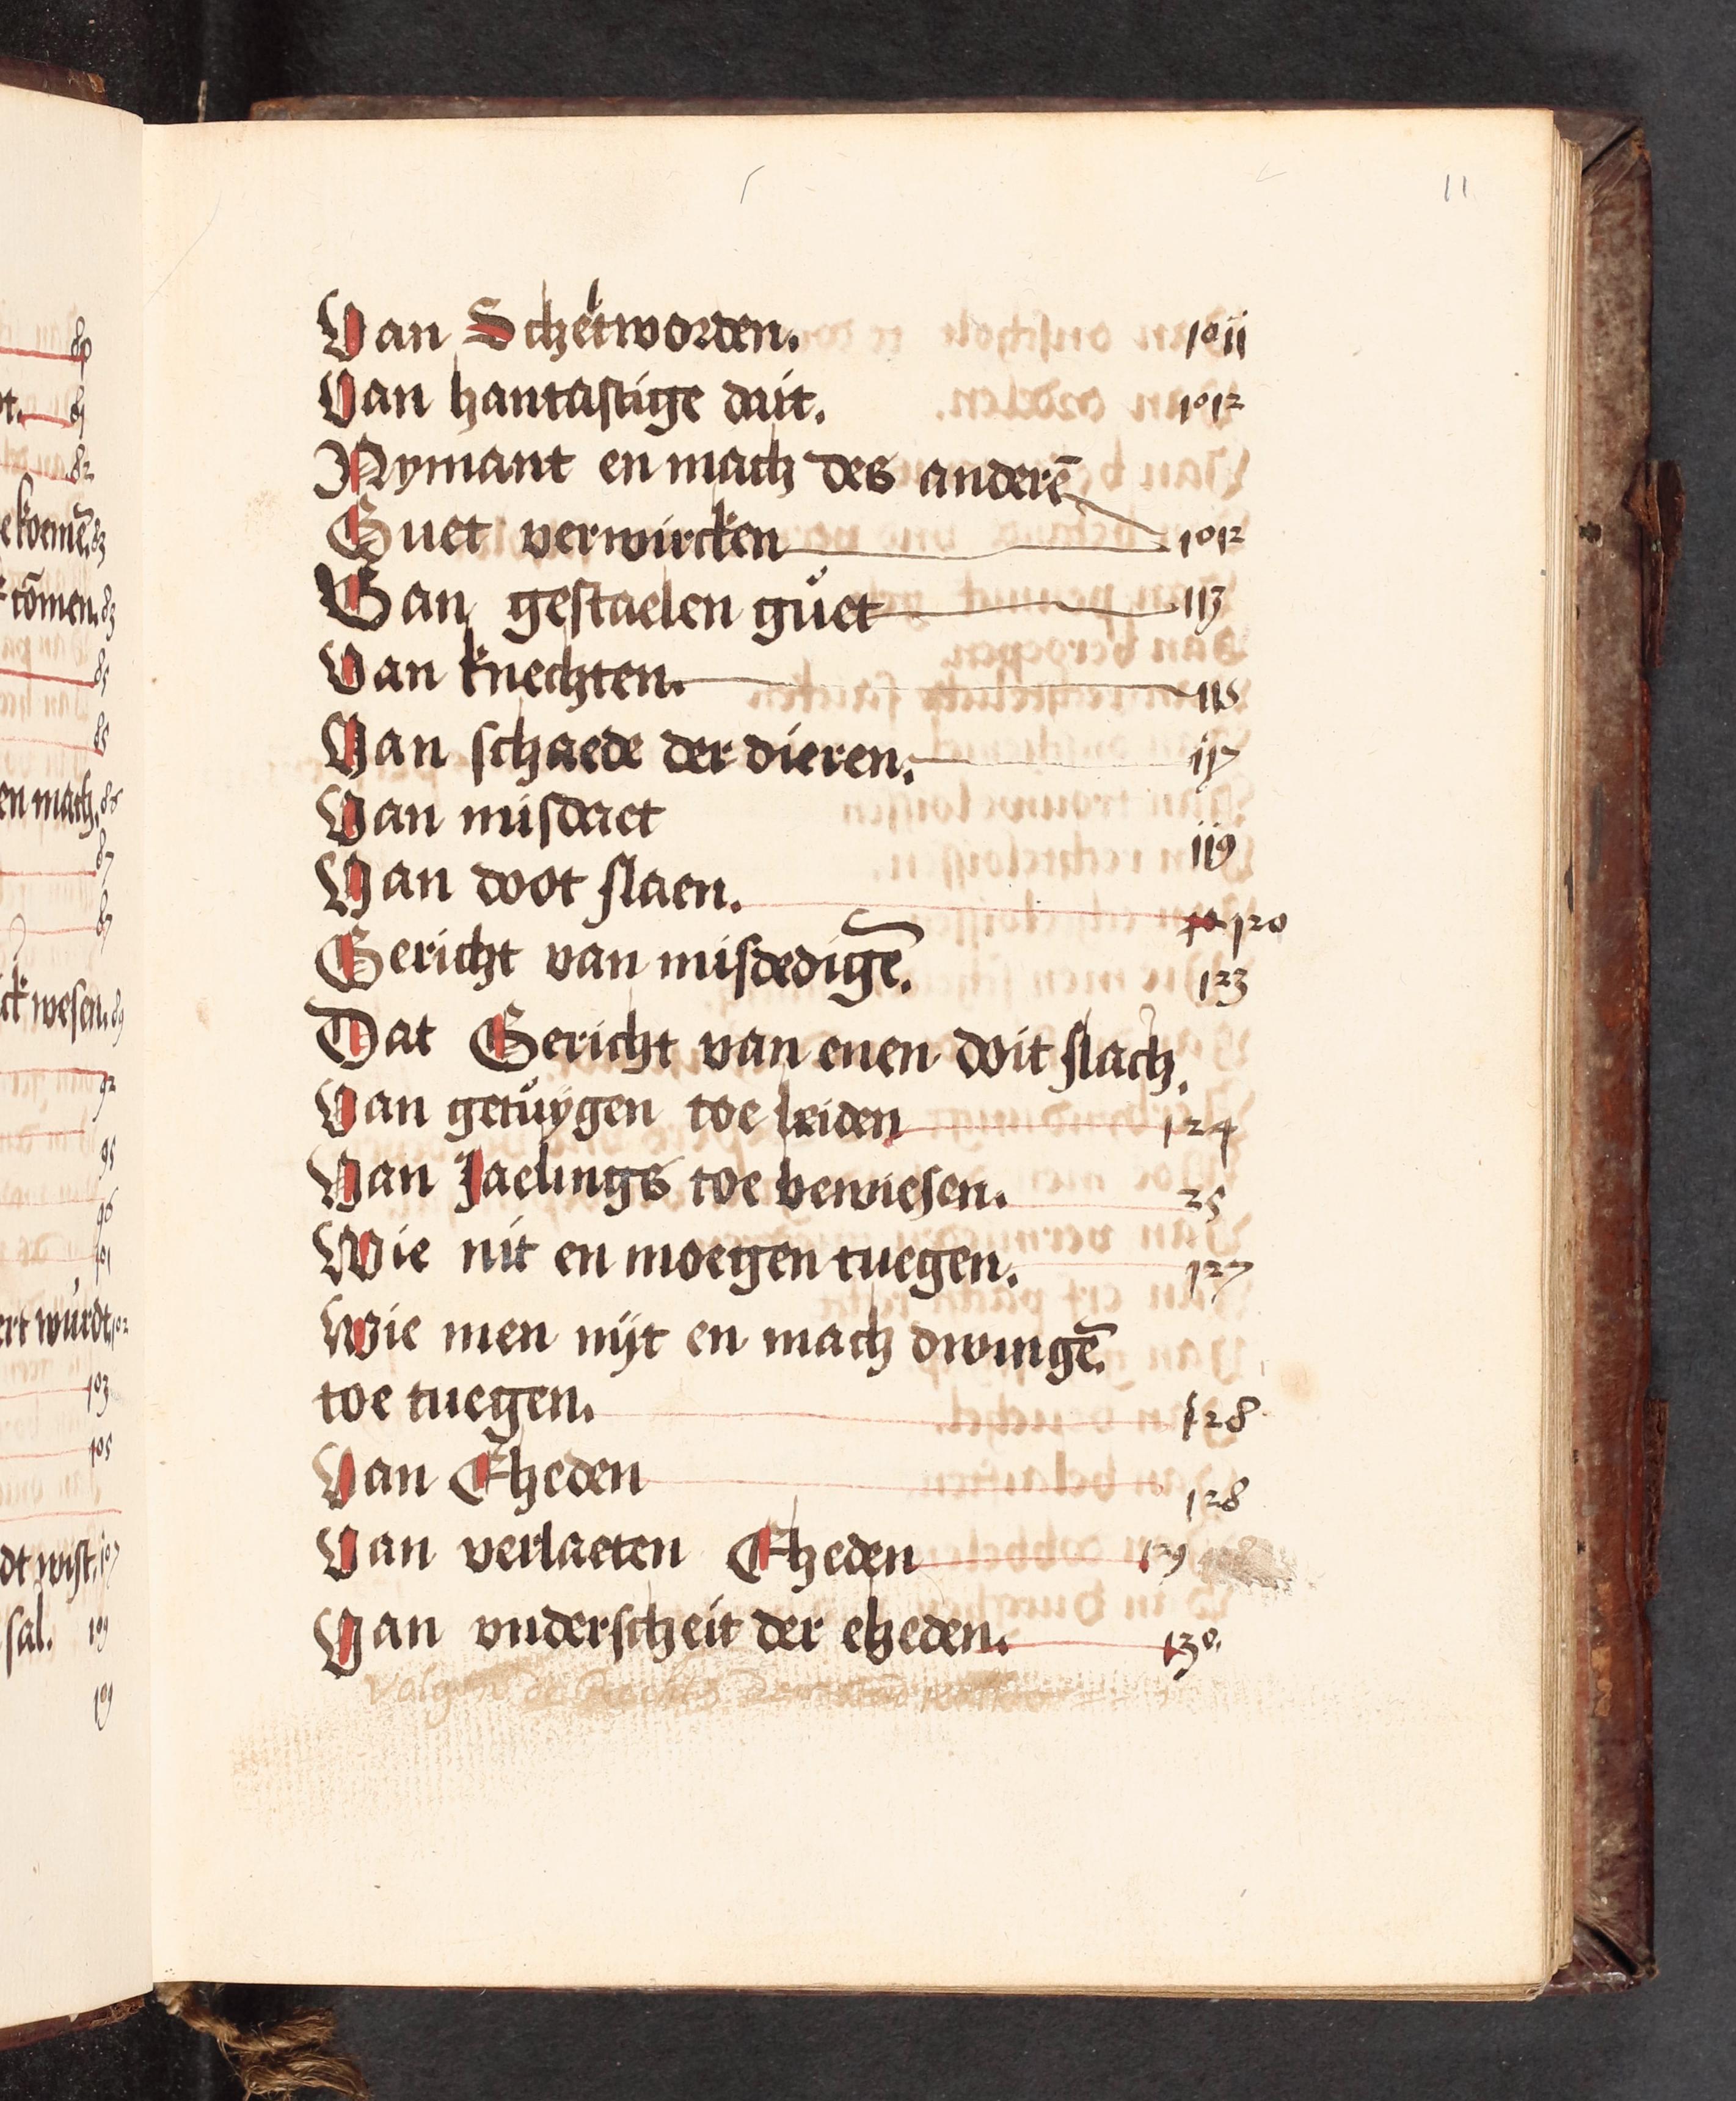 11
Van Scheltworden. 1011
Van hantastige dait. 1012
Nymant en mach des anderē
Guet verwircken 1012
Van gestaelen gůet 113
Van knechten. 116
Van schaede der dieren. 117
Van misdaet
119
Van doot slaen. 120
Gericht van misdedigē. 123
Dat Gericht van enen doit slach.
Van getůygen toe leiden 124
Van Jaelings toe bewiesen. 25
Wie nit en moegen tuegen. 127
Wie men nijt en mach dwingē.
toe tuegen. 128
Van Eheden 128
Van verlaeten Eheden 129
Van vnderscheit der eheden. 130.
80
81
82
83
83
85
85
en mach. 86
87
87
wesen. 89
92
95
96
101
wůrdt. 102
103
105
107
sal. 109
109